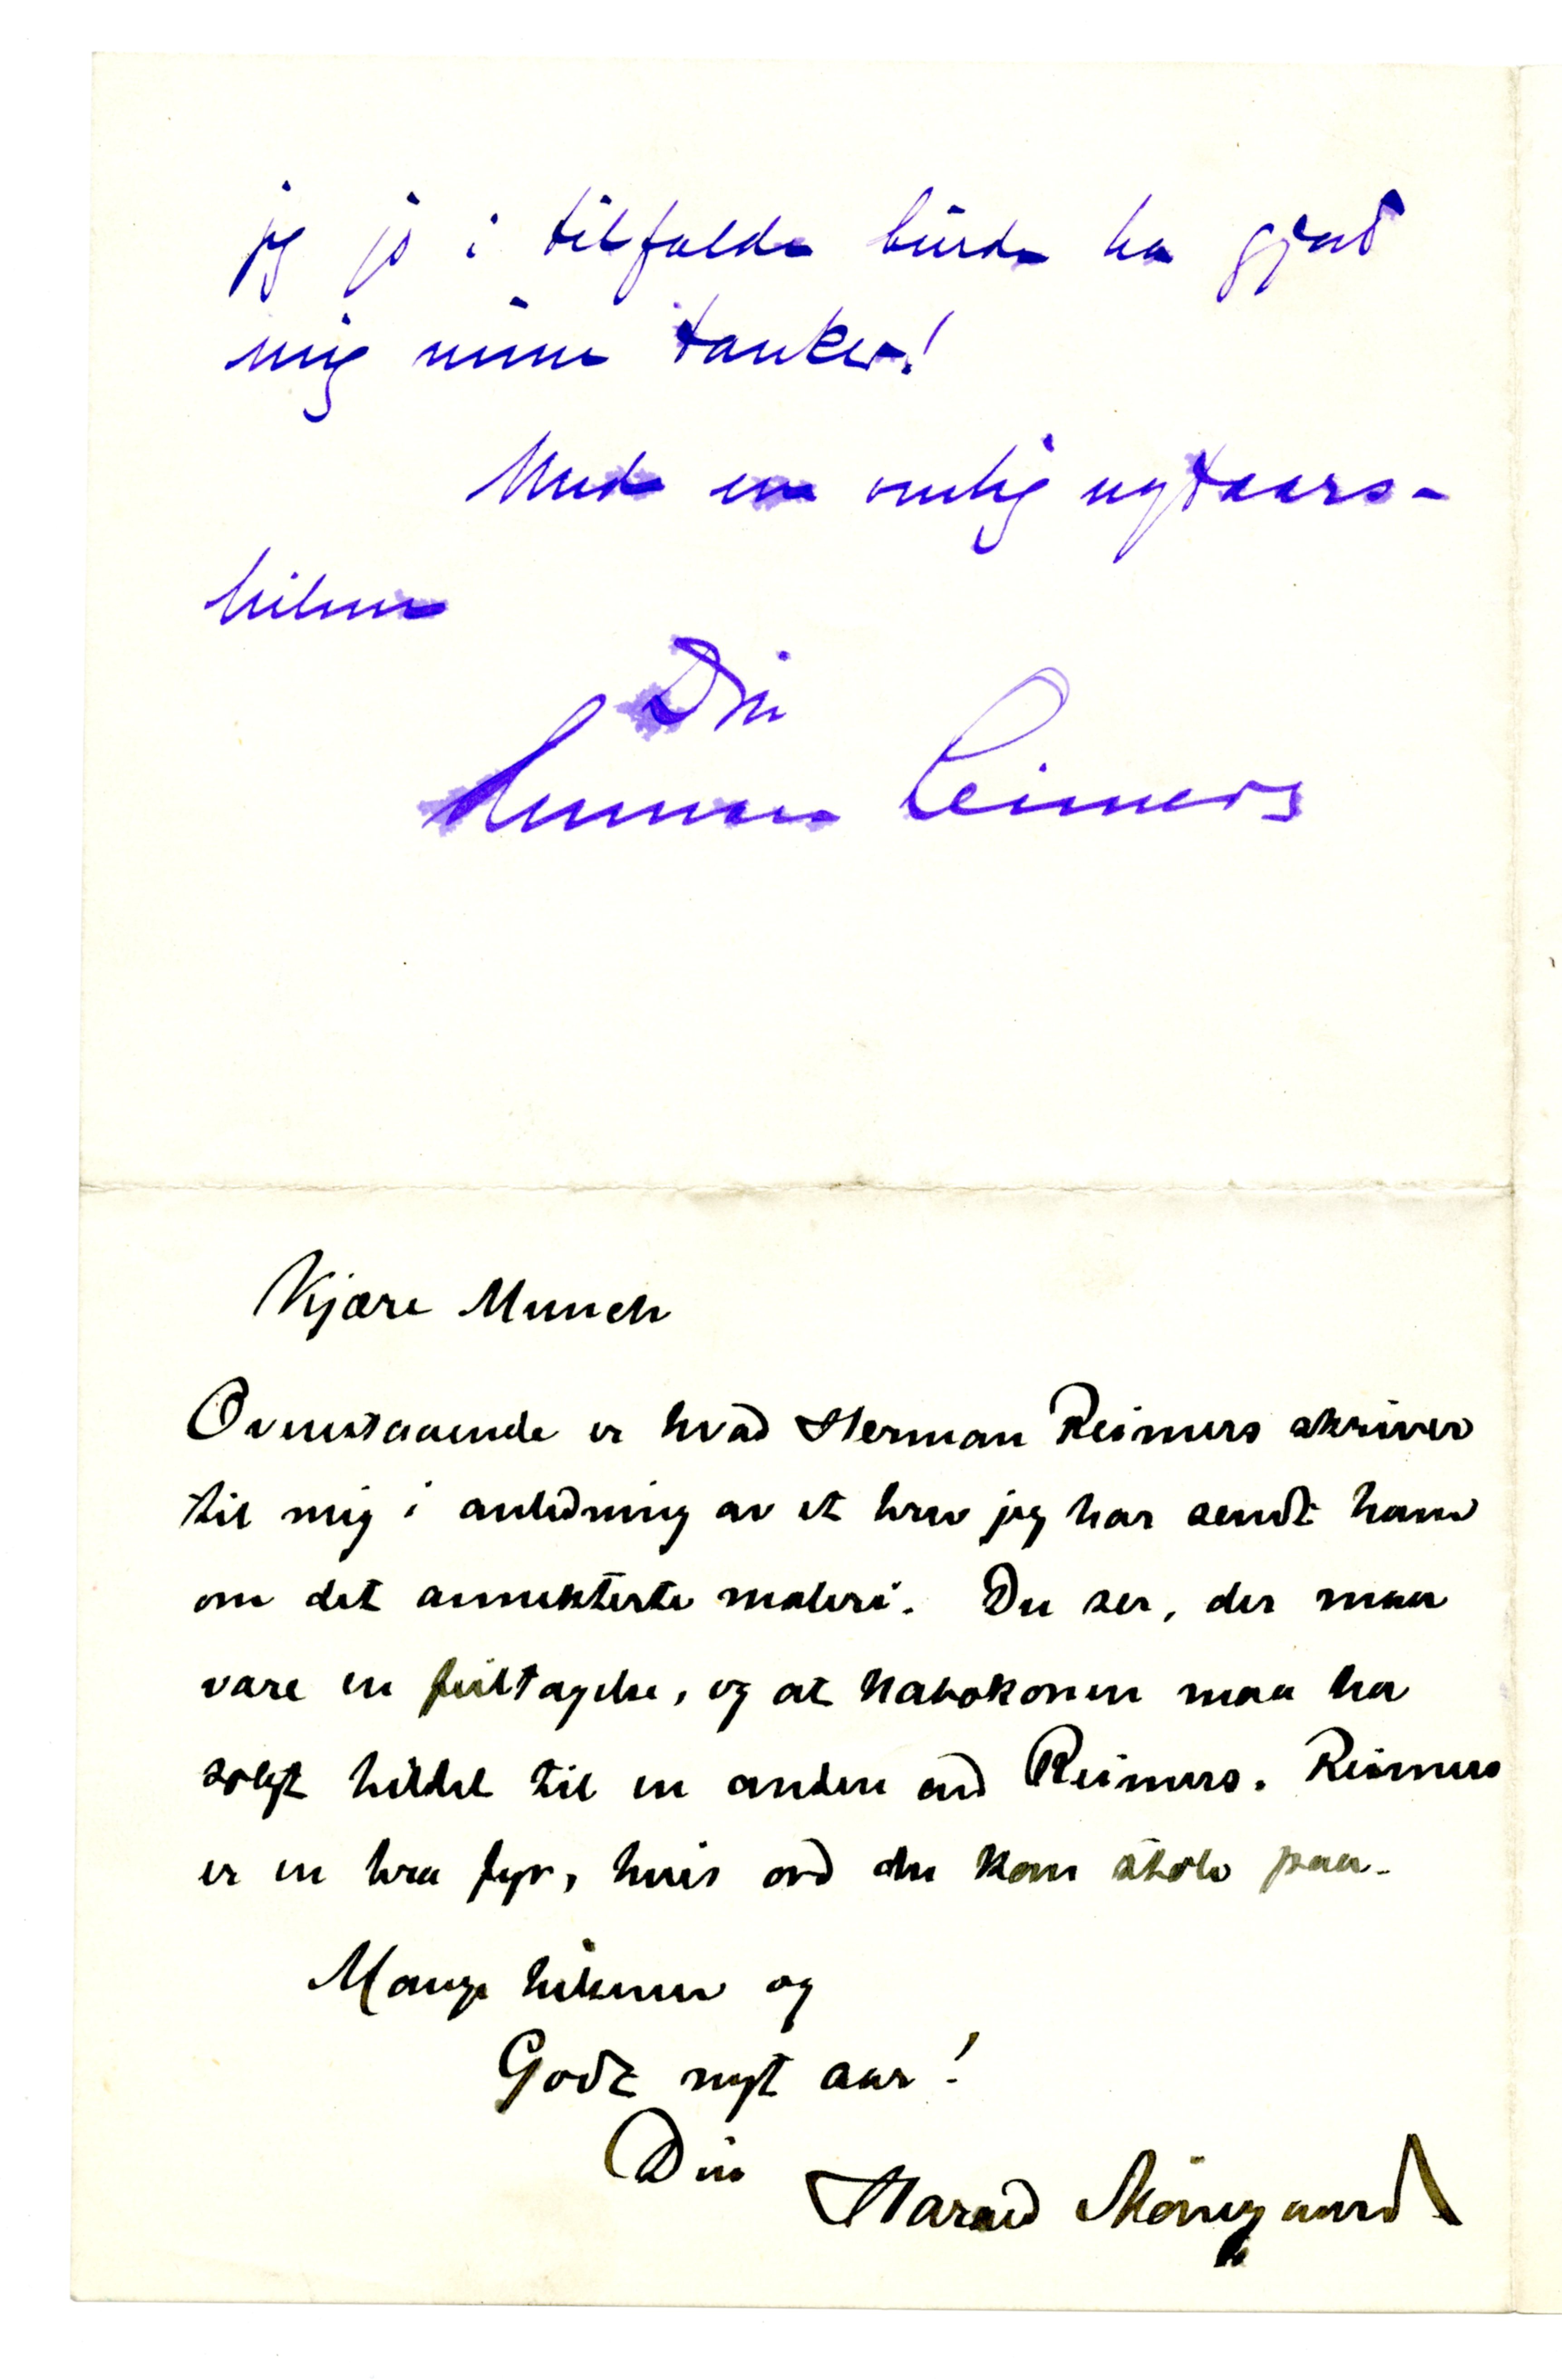 jeg jo i tilfælde burde ha gjort
mig mine tanker!
Med en venlig nytaars-
hilsen
Din
Herman Reimers
Kjære Munch
Ovenstaaende er hvad Herman Reimers skriver
til mig i anledning av et brev jeg har sendt ham
om det annekterte maleri. Du ser, der maa
være en feiltagelse, og at nabokonen maa ha
solgt billedet til en anden end Reimers. Reimers
er en bra fyr, hvis ord du kan stole paa.
Mange hilsener og
Godt nytt aar!
Din Harald Nørregaard